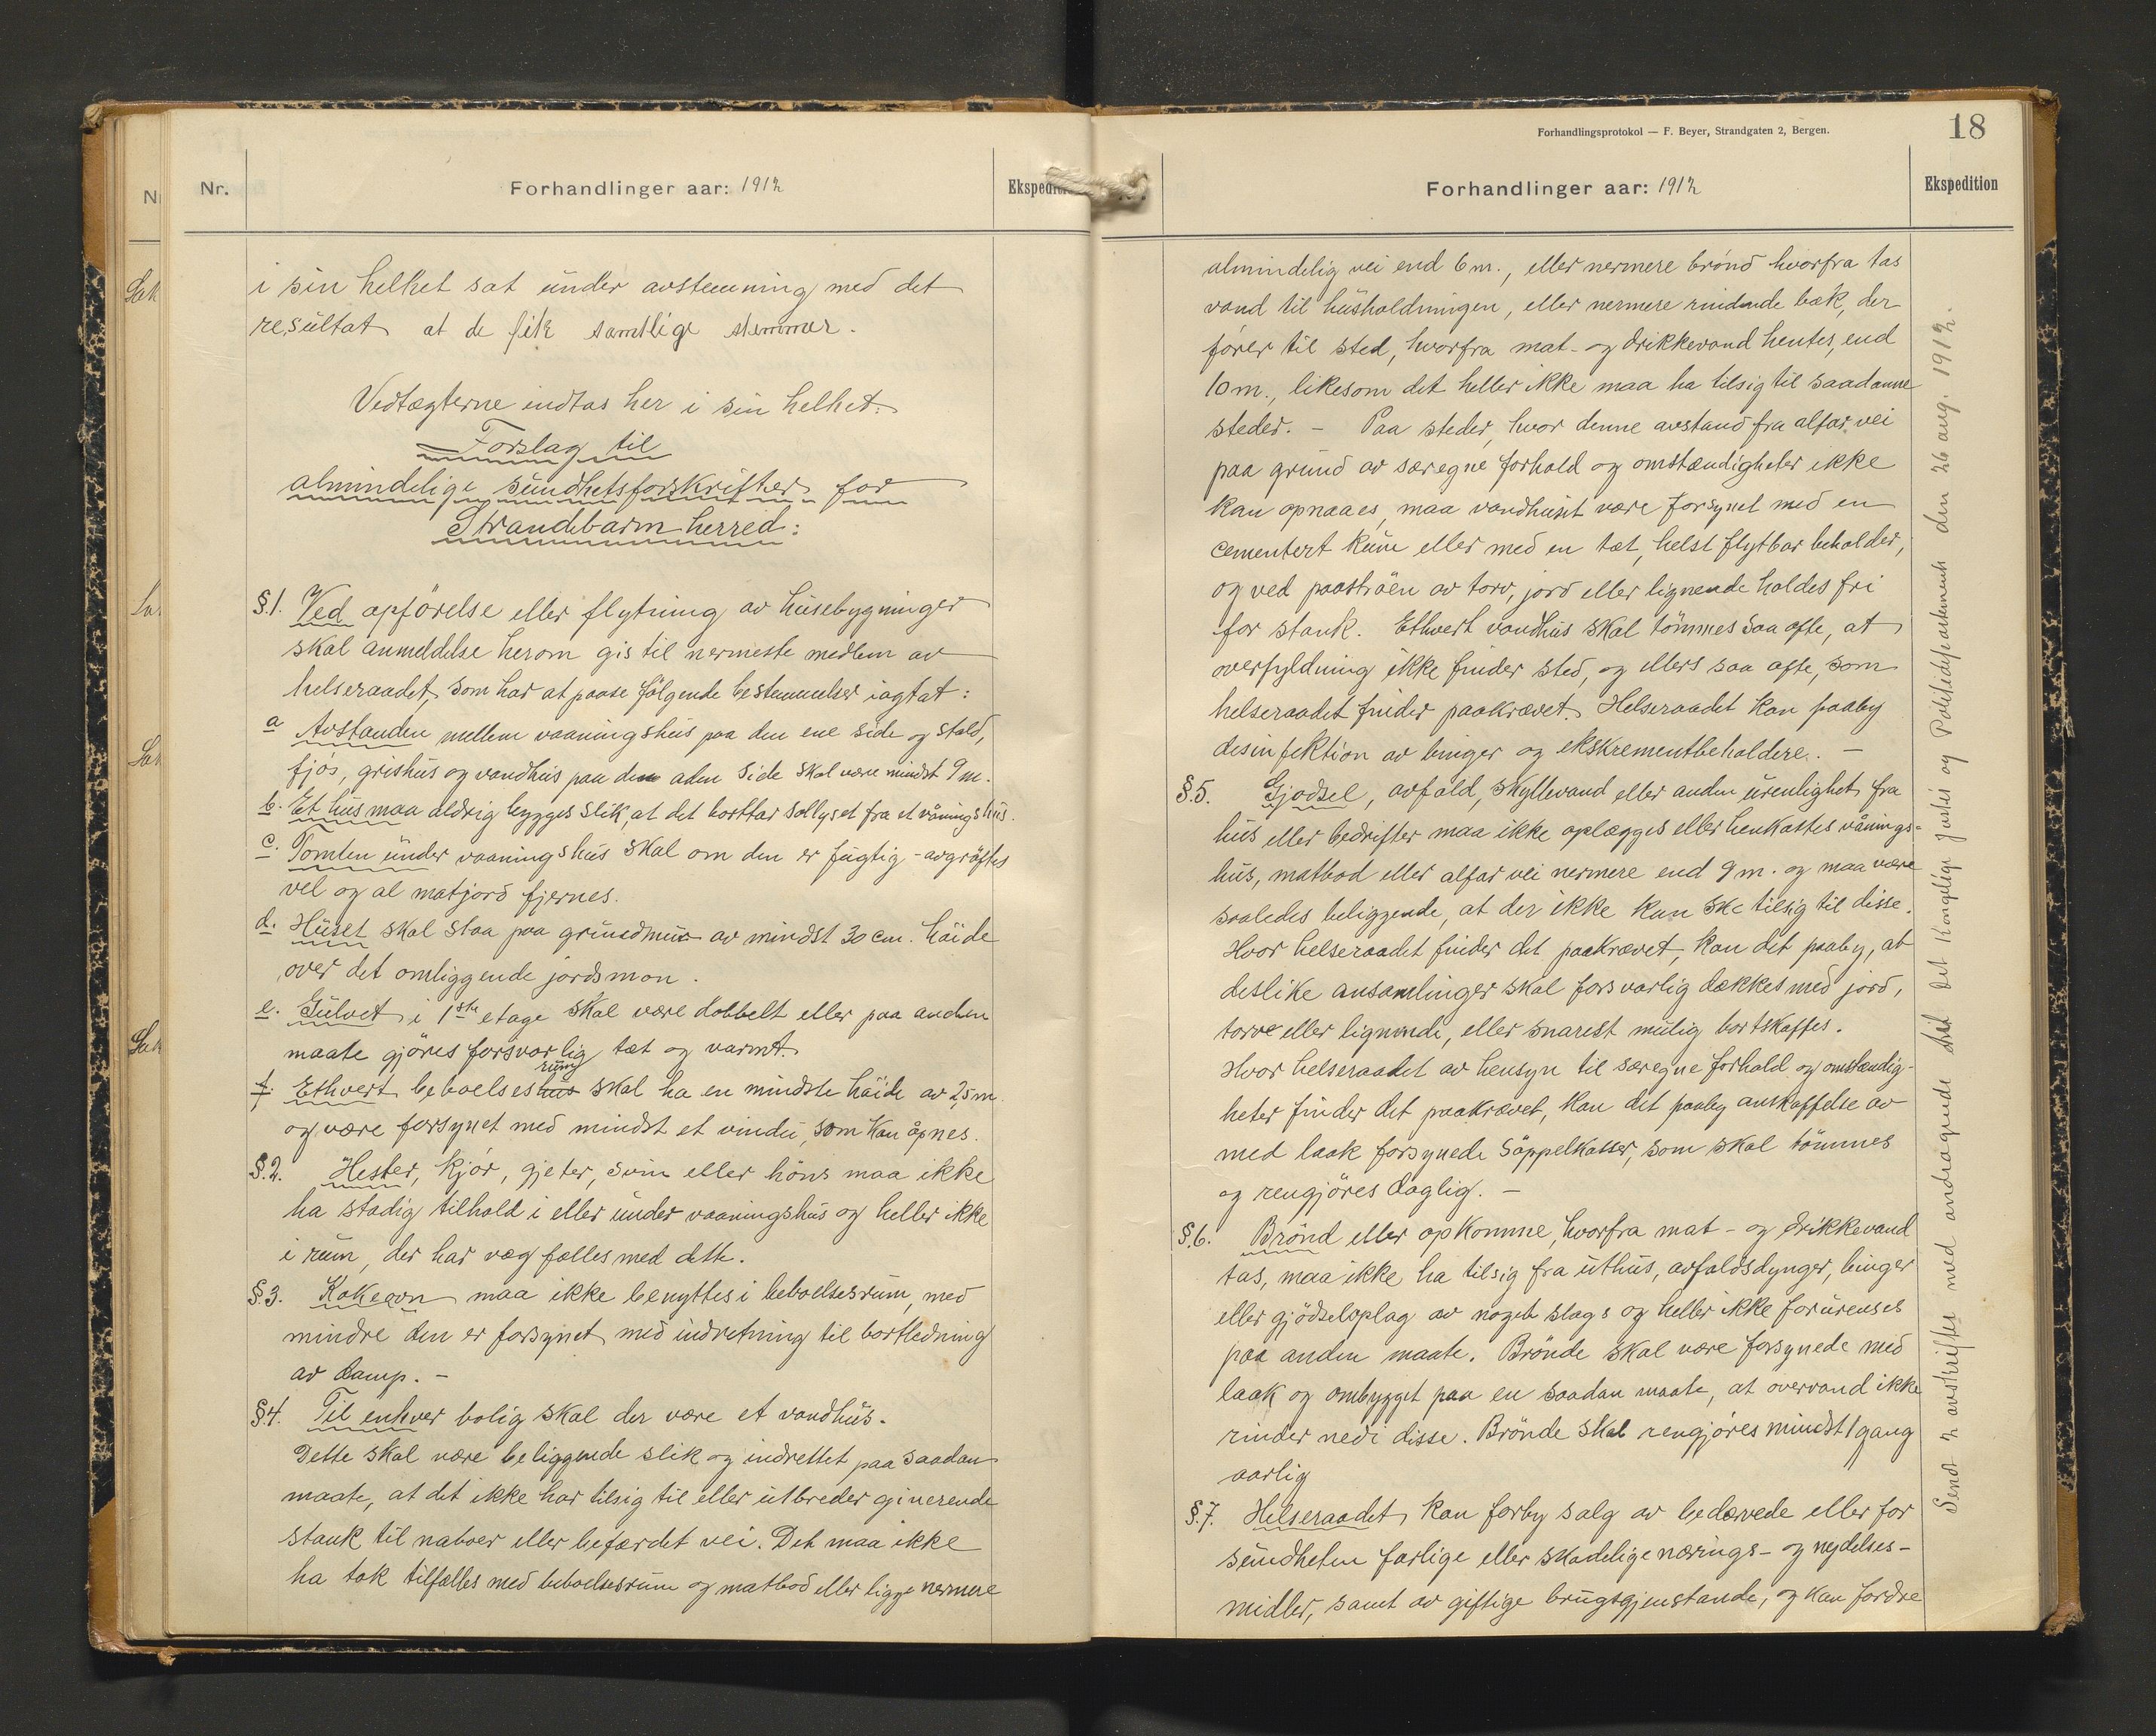 Nr.
Forhandlinger aar: 1912
i sin helhet sat under avstemning med det
resultat at de fik samtlige stemmer.
Vedtægterne indtas her i sin helhet:
Forslag til
almindelige sundhetsforskrifter for
Strandebarm herred:
§.1. Ved opförelse eller flytning av husebygninger
skal anmeldelse herom gis til nermeste medlem av
helseraadet, som har at paase fölgende bestemmelser iagtat:
a Avstanden mellem vaaningshus paa den ene side og stald,
fjös, grishus og vandhus paa den aden side skal være mindst 9 m.
b. Et hus maa aldrig bygges slik, at det borttar sollyset fra et våningshus.
c. Tomten under vaaningshus skal om den er fugtig - avgröftes
vel og al matjord fjernes.
d. Huset skal staa paa grundmur av mindst 30 cm. höide
over det omliggende jordsmon.
e. Gulvet i 1ste etage skal være dobbelt eller paa anden
maate gjöres forsvarlig tæt og varmt.
rum
f. Ethvert beboelseshus skal ha en mindste höide av 2,5 m
og være forsynet med mindst et vindu, som kan åpnes.
§.2. Hester, kjör, gjeter, svin eller höns maa ikke
ha stadig tilhold i eller under vaaningshus og heller ikke
i rum, der har væg fælles med dette.
§.3. Kokeovn maa ikke benyttes i beboelsesrum, med
mindre den er forsynet med indretning til bortledning
av damp. -
§4. Til enhver bolig skal der være et vandhus.
Dette skal være beliggende slik og indrettet paa saadan
maate, at det ikke har tilsig til eller utbreder generende
stank til naboer eller befærdet vei. Det maa ikke
ha tak tilfælles med beboelsesrum og matbod eller ligge nermere
Forhandlingsprotokol — F. Beyer, Strandgaten 2, Bergen.
18
Forhandlinger aar: 1912
Ekspedition
almindelig vei end 6 m., eller nermere brönd hvorfra tas
vand til husholdningen, eller nermere rindende bæk, der
förer til sted, hvorfra mat- og drikkevand hentes, end
10 m., likesom det heller ikke maa ha tilsig til saadanne
steder. - Paa steder, hvor denne avstand fra alfar vei
paa grund av særegne forhold og omstændigheter ikke
kan opnaaes, maa vandhuset være forsynet med en
cementert kum eller med en tæt, helst flytbar beholder,
og ved paaströen av torv, jord eller lignende holdes fri
for stank. Ethvert vandhus skal tömmes saa ofte, at
overfyldning ikke finder sted, og ellers saa ofte, som
helseraadet finder paakrævet. Helseraadet kan paaby
desinfektion av binger og ekskrementbeholdere. -
§.5. Gjødsel, avfald, skyllevand eller anden urenlighet fra
hus eller bedrifter maa ikke oplægges eller henkastes vånings-
hus, matbod eller alfar vei nermere end 9 m. og maa være
saaledes beliggende, at der ikke kan ske tilsig til disse.
Hvor helseraadet finder det paakrævet, kan det paaby, at
deslike ansamlinger skal forsvarlig dækkes med jord,
torv eller lignende, eller snarest mulig bortskaffes.
Hvor helseraadet av hensyn til særegne forhold og omstændig-
heter finder det paakrævet, kan det paaby anskaffelse av
med laak forsynede söppelkasser, som skal tömmes
og rengjöres daglig. -
§.6. Brönd eller opkomme, hvorfra mat- og drikkevand
tas, maa ikke ha tilsig fra uthus, avfaldsdynger, binger
eller gjödseloplag av noget slags og heller ikke forurenses
paa anden maate. Brönde skal være forsynede med
laak og ombygget paa en saadan maate, at overvand ikke
rinder ned i disse. Brönde skal rengjöres mindst 1 gang
aarlig
§.7. Helseraadet kan forby salg av bedærvede eller for
sundheten farlige eller skadelige nærings- og nydelses-
midler, samt av giftige brugsgjenstande, og kan fordre
Sendt 2 avskrifter med andragende til det Kongelige Justis og Politidepartement den 26 aug. 1912.